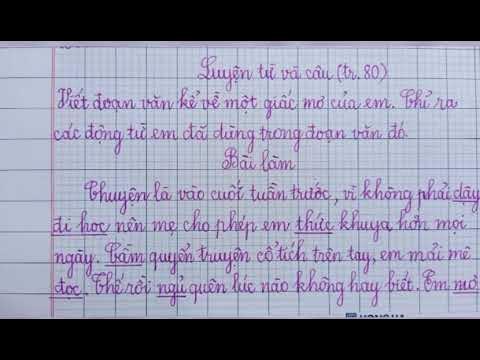 Luyện từ và câu (tr. 80)
Viết đoạn văn kể về một giấc mơ của em. Chỉ ra
các động từ em đã dùng trong đoạn văn đó.
Bài làm
Chuyện là vào cuối tuần trước, vì không phải dậy
đi học nên mẹ cho phép em thức khuya hơn mọi
ngày. Cầm quyển truyện cổ tích trên tay, em mải mê
đọc. Thế rồi ngủ quên lúc nào không hay biết. Em mơ
HONG HA